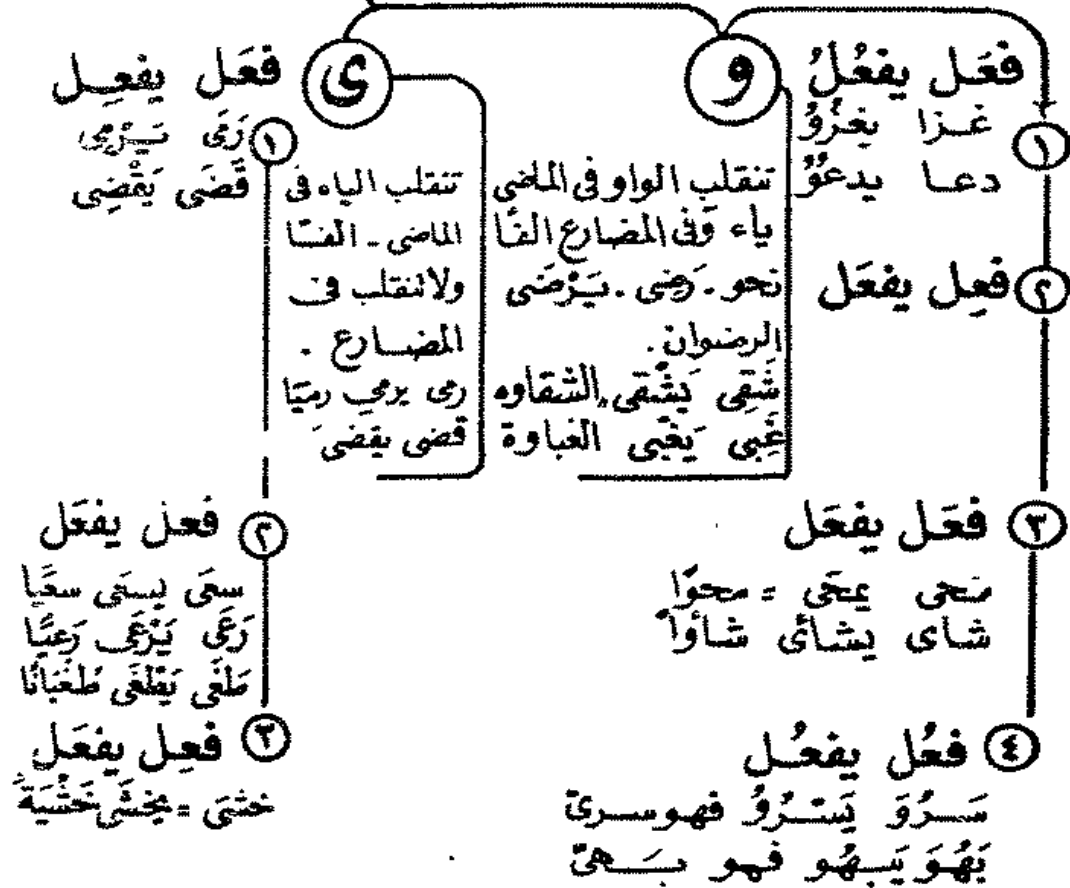 و
فَعَل يفعُلُ
١
غـزا يغزُوُ
دعـا يدعُوُ
٢
فعِل يفعَل
تنقلب الواو فى الماضى
ياء وفى المضارع الفًا
نحو ـ رَضِى ـ يَـرْضَى
الرضوان .
شَقِى يَشْقَى الشقاوه
غَبِى يَغْبَى الغباوة
٣
فَعَل يفعَل
مَـحى يمحَى = محوًا
شاى يشائى شأوًا
٤
فعُل يفعُـل
سَـرُوَ يَسـرُوُ فهو سرىّ
بَهُوَ يَبهُو فهو بـهىّ
ى
فَعَل يفعِـل
١
رَمَى يَـرْمِى
قَضَى يَقْضِى
تنقلب الياء فى
الماضى ـ الفـًا
ولا تنقلب فى
المضـارع .
رمى يرمى رميًا
قضى يقضى
٢
فعل يفعَل
سعَى يسعَى سعْيًا
رَعَى يَرْعَى رَعيًا
طَغَى يَطْغَى طُغْيَانًا
٣
فعِـل يفعَل
خشىَ = يخشَى خَشْيَةً